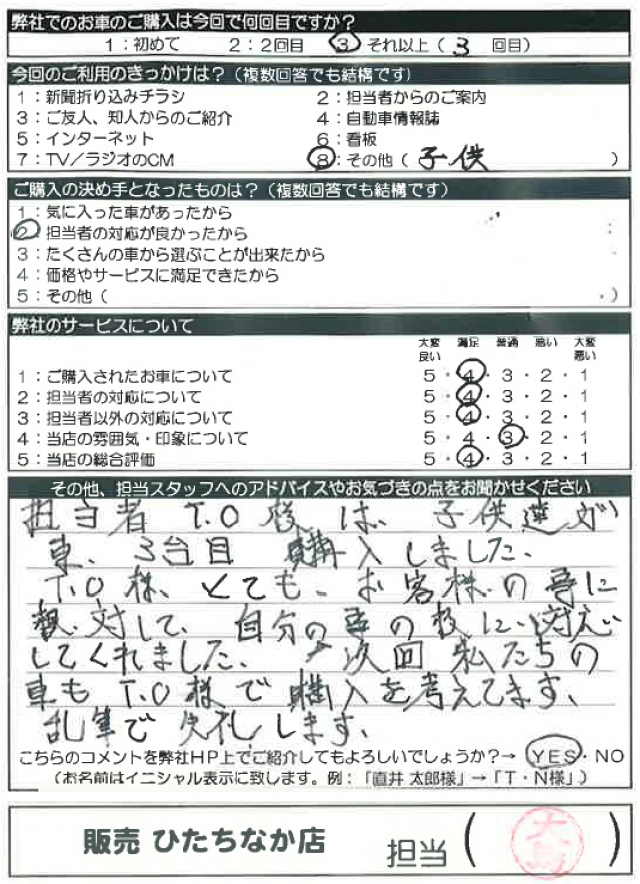 弊社でのお車のご購入は今回で何回目ですか?
1:初めて 2:2回目 3 それ以上( 3 回目)
今回のご利用のきっかけは?(複数回答でも結構です)
1:新聞折り込みチラシ 2:担当者からのご案内
3:ご友人、知人からのご紹介 4:自動車情報誌
5:インターネット 6:看板
7:TV/ラジオのCM 8:その他( 子供 )
ご購入の決め手となったものは?(複数回答でも結構です)
1:気に入った車があったから
2:担当者の対応が良かったから
3:たくさんの車から選ぶことが出来たから
4:価格やサービスに満足できたから
5:その他( )
弊社のサービスについて
大変良い 満足 普通 悪い 大変悪い
1:ご購入されたお車について 5・4・3・2・1
2:担当者の対応について 5・4・3・2・1
3:担当者以外の対応について 5・4・3・2・1
4:当店の雰囲気・印象について 5・4・3・2・1
5:当店の総合評価 5・4・3・2・1
その他、担当スタッフへのアドバイスやお気づきの点をお聞かせください
担当者 T.O様は、子供達が
車、3台目 購入しました、
T.O様、とても、お客様の事に
対して、自分の事の様に、対応
してくれました、次回 私たちの
車も T.O様で購入を考えてます、
乱筆で失礼します、
こちらのコメントを弊社HP上でご紹介してもよろしいでしょうか?→ YES・NO
(お名前はイニシャル表示に致します。例:「直井 太郎様」→「T・N様」)
販売 ひたちなか店 担当( )